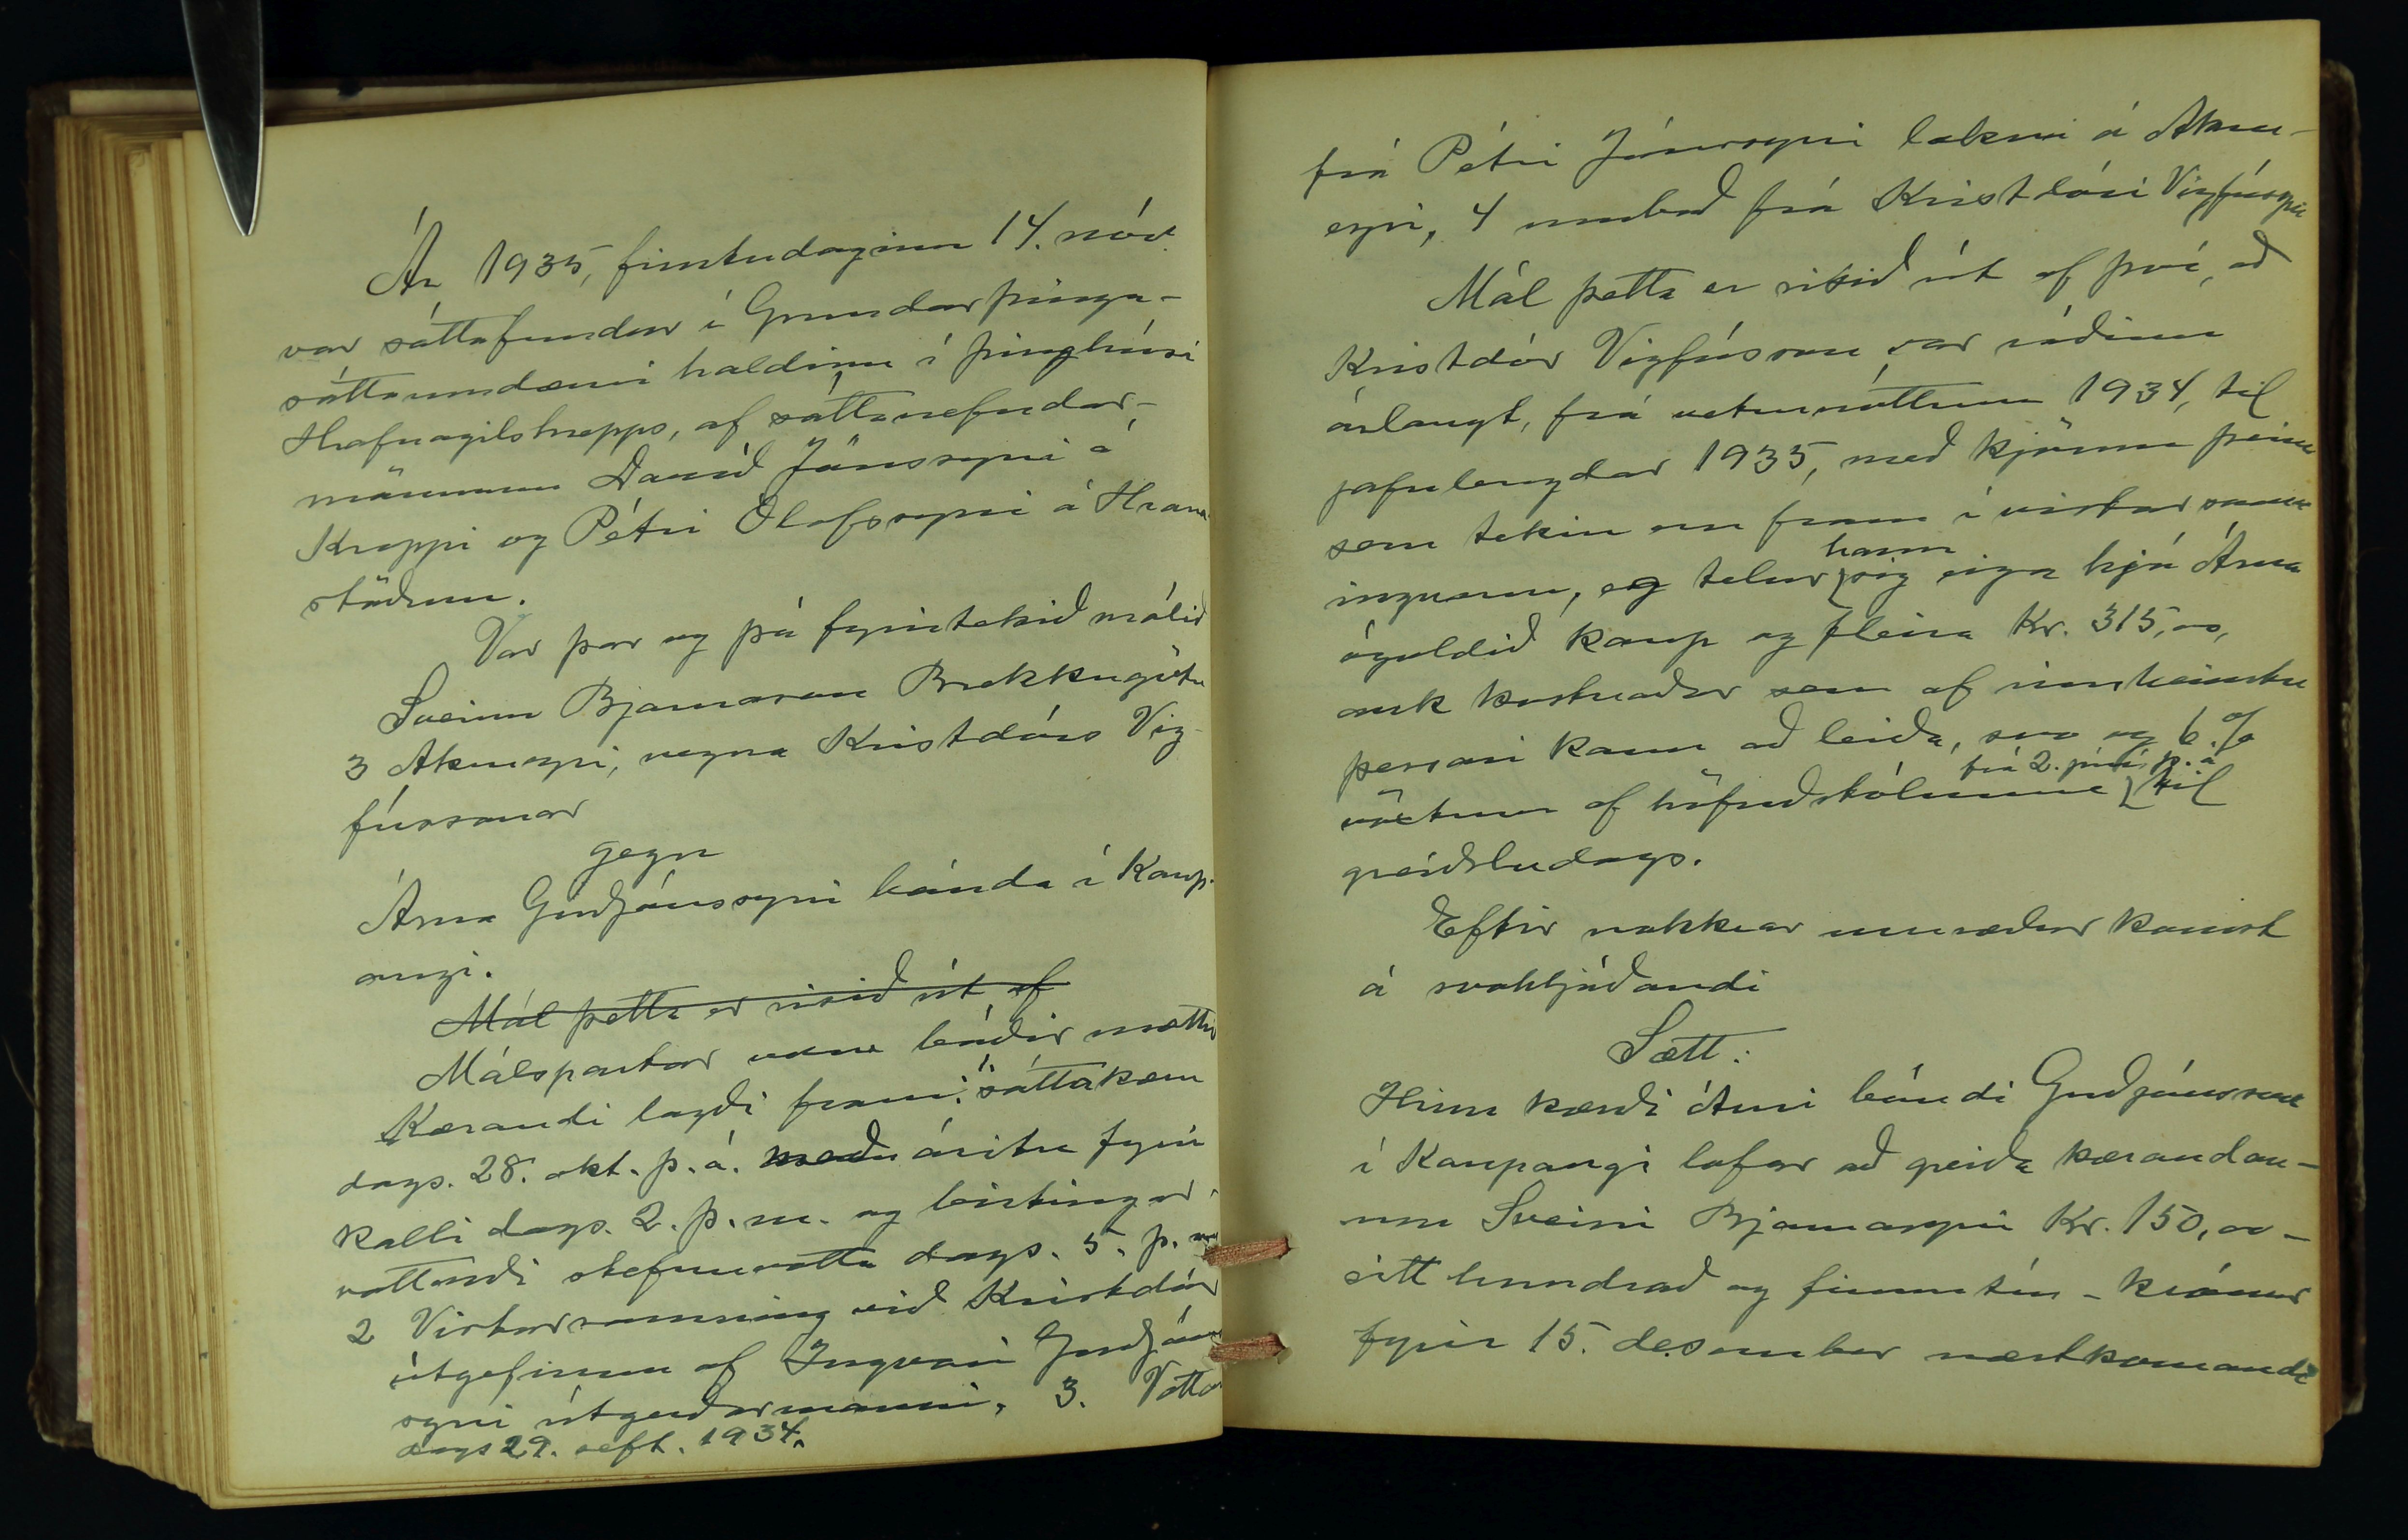 Ár 1935, fimtudaginn 14. nóv.
var sáttafundur í Grundarþinga-
sáttaumdæmi haldinn í þinghúsi
Hrafnagilshrepps, af sáttanefndar-
mönnum Davíð Jónssyni á
Kroppi og Pétri Ólafssyni á Hrana
stöðum.
Var þar og þá fyrirtekið málið
Sveinn Bjarnason Brekkugötu
3 Akureyri, vegna Kristdórs Vig-
fússonar
gegn
Árna Guðjónssyni bónda í Kaup-
angi.
Mál þetta er risið út af
Málspartar voru báðir mættir
Kærandi lagði fram: 1. sáttakæru
dags. 28. okt. þ. á. með áritun fyrir
kalli dags. 2. þ. m. og birtingar-
vottorði stefnuvotta dags. 5. þ. m
2 Vistarsamning við Kristdór
útgefinn af Ingvari Guðjóns
syni útgerðarmanni, 3. Vottor
dags 29. seft. 1934.
frá Pétri Jónssyni lækni á Akur-
eyri, 4 umboð frá Kristdóri Vigfússyni
Mál þetta er risið út af því, að
Kristdór Vigfússon var ráðinn
árlangt, frá veturnóttum 1934, til
jafnlengdar 1935, með kjörum þeim
sem tekin eru fram í vistarsamn
hann
ingnum, og telur sig eiga hjá Árna
ógoldið kaup og fleira Kr. 315,00,
auk kostnaðar sem af innheimtu
þessari kann að leiða, svo og 6%
frá 2. júní þ. á
vöxtum af höfuðstólnum til
greiðsludags.
Eftir nokkrar umræður komst
á svohljóðandi
Sætt:
Hinn kærði Árni bóndi Guðjónsson
í Kaupangi lofar að greiða kærandan-
um Sveini Bjarnasyni Kr. 150,00 -
eitt hundrað og fimmtíu - krónur
fyrir 15. desember næstkomandi